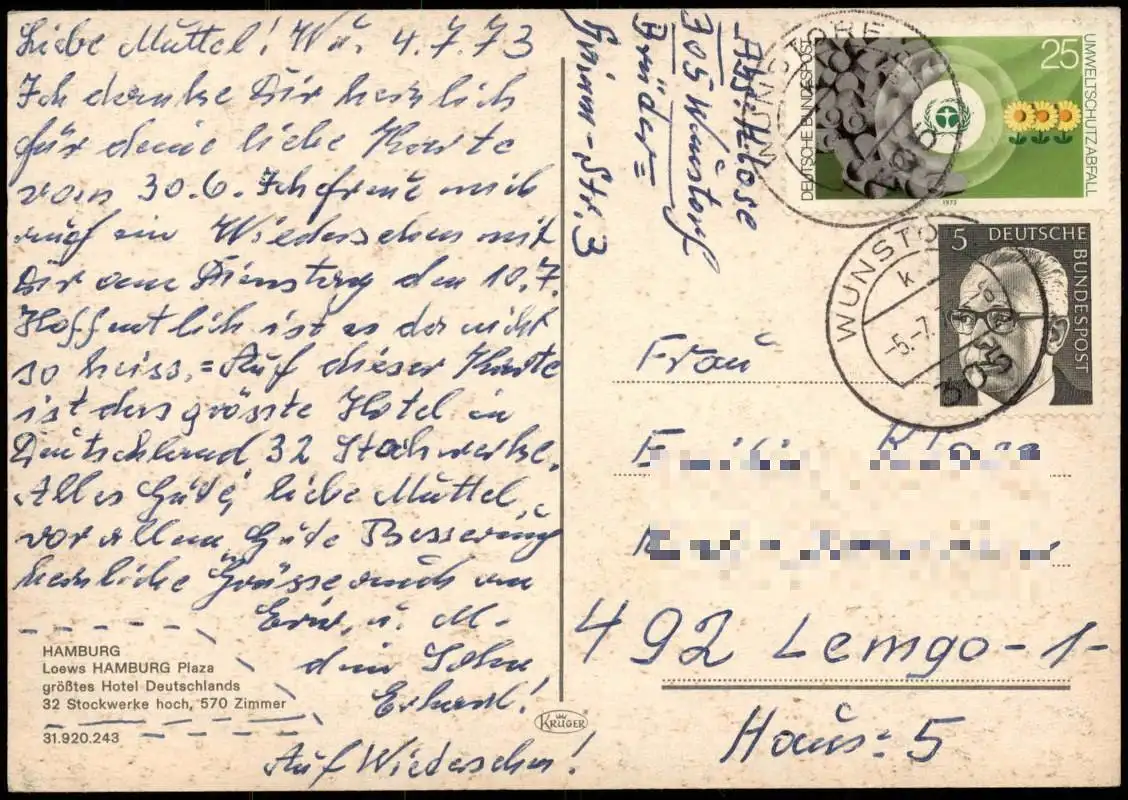 Liebe Muttel! Wü. 4.7.73
Ich danke Dir herzlich
für deine liebe Karte
vom 30.6. Ich freue mich
auf ein Wiedersehen mit
Dir am Dienstag den 10.7.
Hoffentlich ist es da nicht
so heiss,=Auf dieser Karte
ist das grösste Hotel in
Deutschland, 32 Stockwerke.
Alles Gute, liebe Muttel,
vor allem Gute Besserung
herzliche Grüsse auch an
u. M.
dein Sohn
Erhard!
Auf Wiedersehen!
HAMBURG
Loews HAMBURG Plaza
größtes Hotel Deutschlands
32 Stockwerke hoch, 570 Zimmer
31.920.243
KRÜGER
305 Wunstorf
Brüder=
Grimm-Str. 3
DEUTSCHE BUNDESPOST
25
UMWELTSCHUTZ ABFALL
1973
WUNSTORF
5
DEUTSCHE
BUNDESPOST
WUNSTO
k
-5.-7.
305
Frau
492 Lemgo-1-
Haus: 5